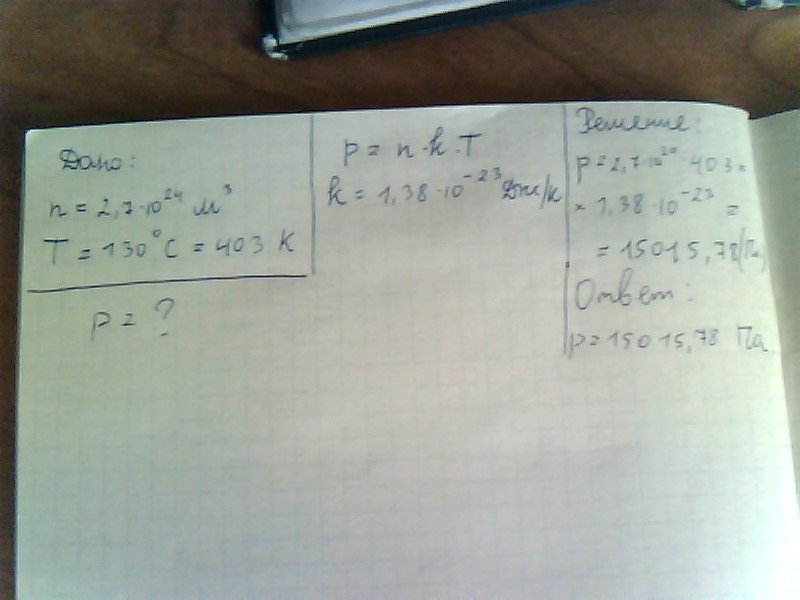 Дано:
n = 2,7·10²⁴ м³
T = 130°C = 403 K
p = ?
p = n·k·T
k = 1,38·10⁻²³ Дж/к
Решение:
p = 2,7·10²⁴·403 ×
× 1,38·10⁻²³ =
= 15015,78(Па)
Ответ:
p = 15015,78 Па